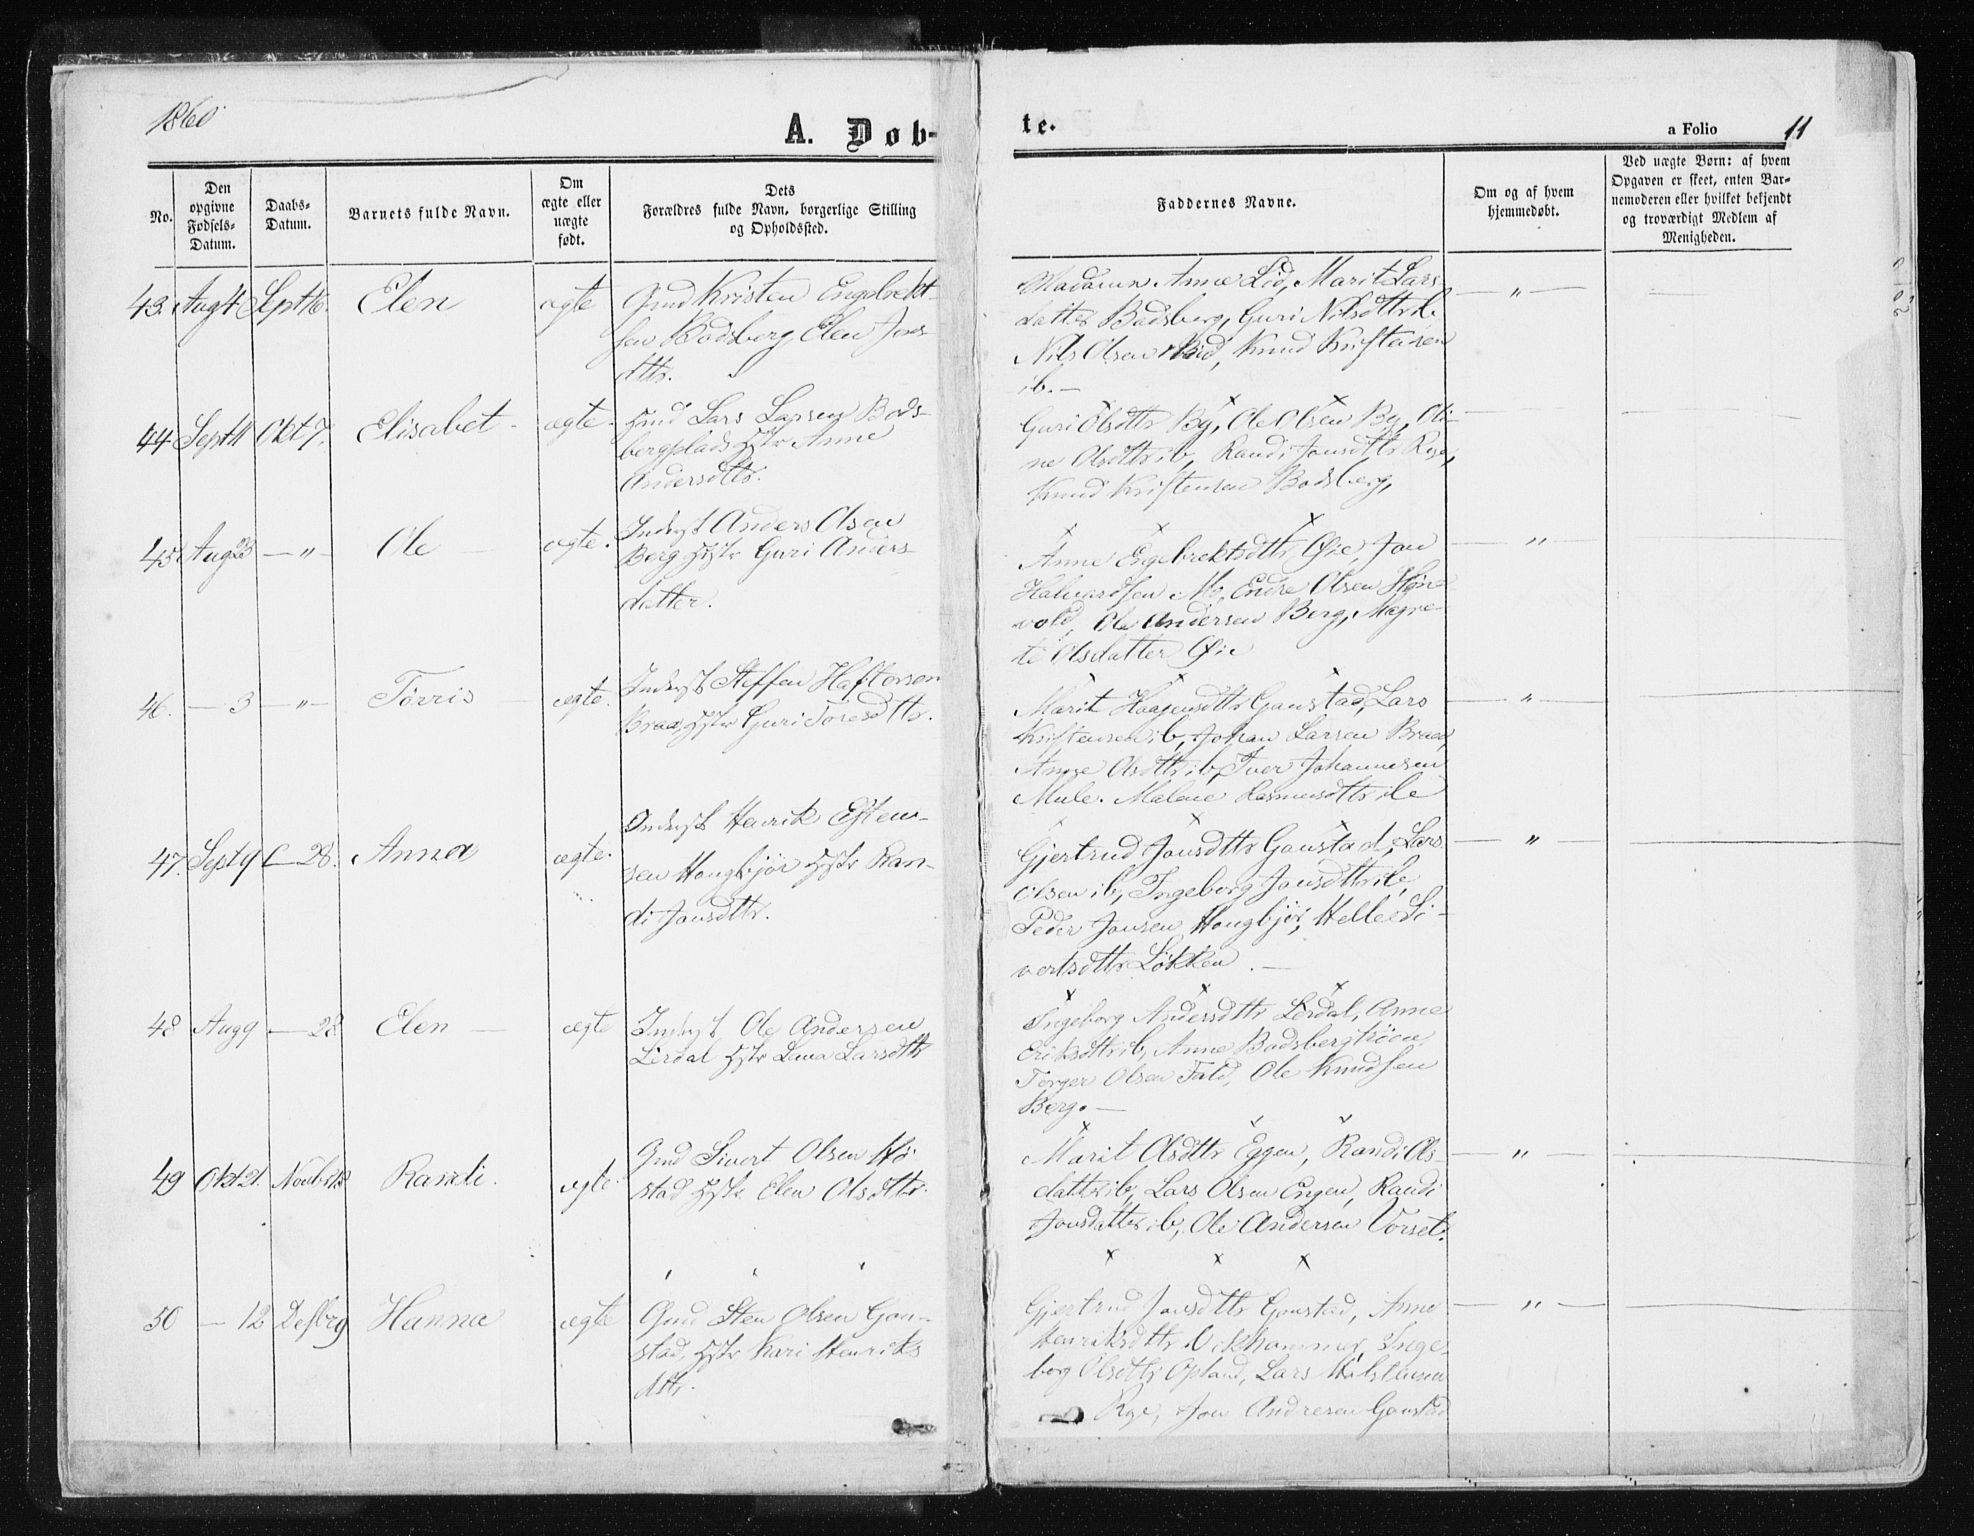 1860
A. Døb-
te.
a Folio 11
No.
Den opgivne Fødsels-Datum.
Daabs-Datum.
Barnets fulde Navn.
Om ægte eller uægte født.
Dets Forældres fulde Navn, borgerlige Stilling og Opholdssted.
Faddernes Navne.
Om og af hvem hjemmedøbt.
Ved uægte Børn: af hvem Opgaven er skeet, enten Barnemoderen eller hvilket bekjendt og troværdigt Medlem af Menigheden.
43. Aug 4 Sept 16. Elen ægte Gmd Kristen Engebrekt-
sen Bodsberg Elen Jons
dttr.
Madamm Anne Lid, Marit Lars-
datter Badsberg, Guri Nilsdttr ib
Nils Olsen, Knud Kristensen
ib. —
— " —
44 Sept 11 Okt 7. Elisabet ægte Hmd Lars Larsen Bods-
bergplads Hstr Anne
Andersdttr.
Guri Olsdttr By, Ole Olsen By, Oli-
ne Olsdttr ib, Randi Jonsdttr Rye,
Knud Kristensen Bodsberg,
45. Aug 23 — " — Ole ægte. Inderst Anders Olsen
Berg Hstr Guri Anders
datter.
Anne Engebrektsdttr Øie, Jon
Halvardsen Mo, Endre Olsen Høn-
vold, Ole Andersen Berg, Magre-
te Olsdatter Øie
— " —
46. — 3 — " — Törris ægte. Inderst Steffen Haftorsen
Braa, Hstr Guri Toresdttr.
Marit Haagensdttr Gaustad, Lars
Kristensen ib, Johan Larsen Braa,
Anne Olsdttr ib, Iver Johannesen
Mule. Malene Rasmusdttr ib
— " —
47. Sept 9 — 28. Anna ægte. Inderst Henrik Esten-
sen Hougbjör Hstr Ran-
di Jonsdttr.
Gjertrud Jonsdttr Gaustad, Lars
Olsen ib, Ingeborg Jonsdttr ib,
Peder Jonsen Hougbjör, Helle Si-
vertsdttr Løkken. —
— " —
48 Aug 9 — 28 Elen — ægte Inderst Ole Andersen
Lerdal Hstr Lena Larsdttr
Ingeborg Andersdttr Lerdal, Anne
Eriksdttr ib, Anne Badsbergtröen,
Torger Olsen Fald, Ole Knudsen
Berg. —
49 Okt 21. Novb 18 Randi. ægte. Gmd Sivert Olsen Hö-
stad Hstr Elen Olsdttr.
Marit Olsdttr Eggen, Randi Ols-
datter ib, Lars Olsen Engen, Randi
Jonsdatter ib, Ole Andersen Vorset.
— " —
50 — 12 Desbr 9 Hanna ægte Gmd Sten Olsen Gau-
stad, Hstr Kari Henriks
dttr.
Gjertrud Jonsdttr Gaustad, Anne
Henriksdttr Vikhammer, Inge-
borg Olsdttr Opland, Lars
Rye, Jon Andresen Gaustad
— " —